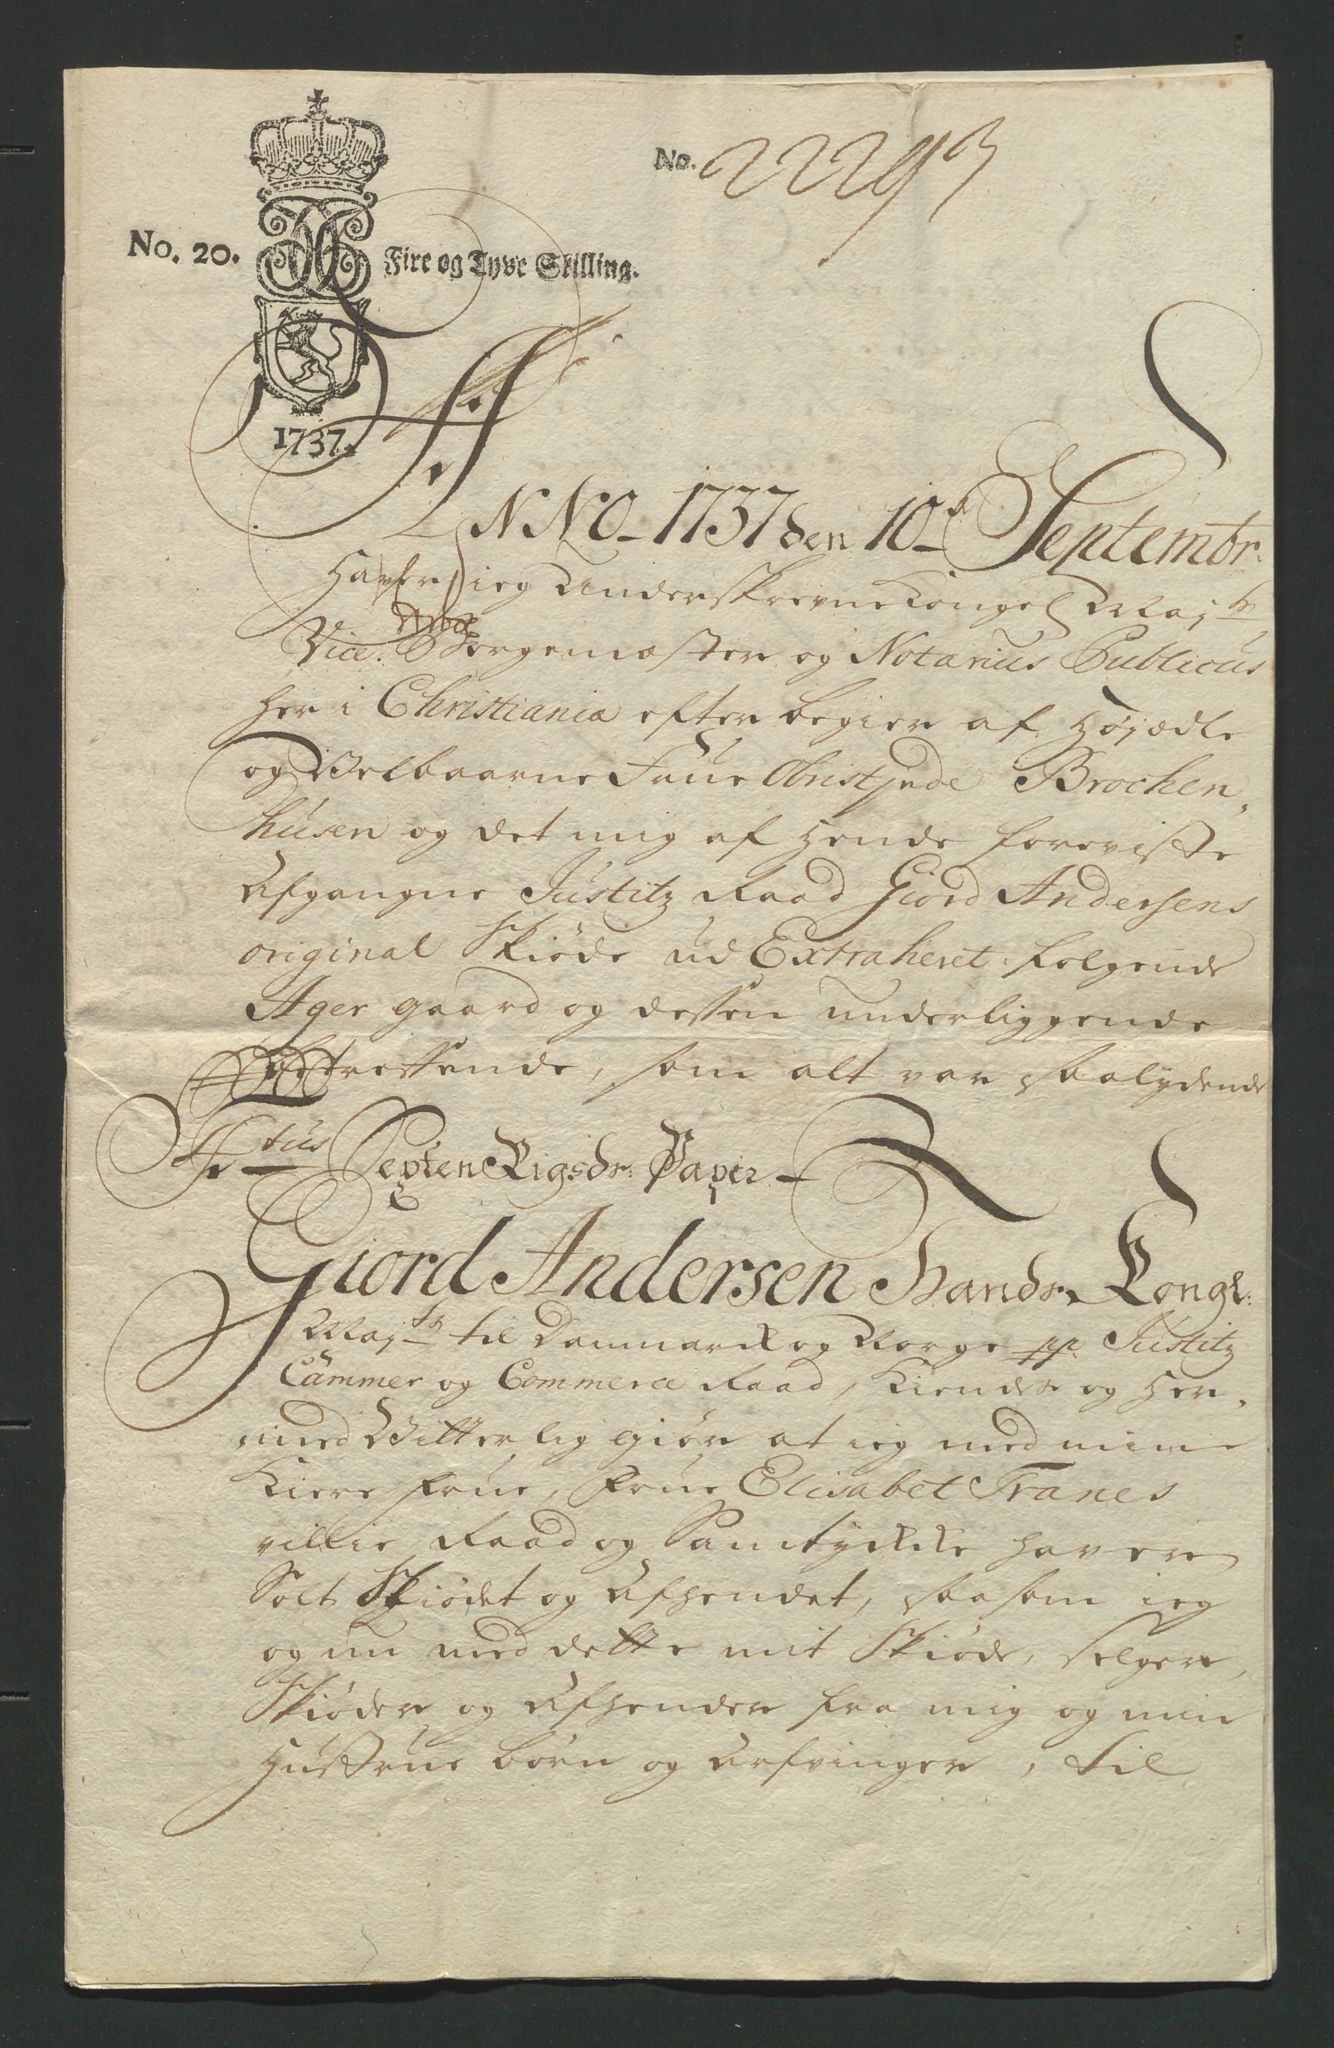 No. 22293
No. 20. Fire og Tyve Skilling.
1737.
ANNO 1737 den 10d Septembr.
Haver ieg Underskrevne Kongel Majts
Vice. Borgemæster og Notarius Publicus
her i Christiania efter begier af Højædle
og Velbaarne Frue Obristinde Brochen,
husen og det mig af Hende foreviste
Afgangne Justitz Raad Giord Andersens
original Skiøde ud Extraheret følgende
Ager gaard og dessen underliggende
betreffende, som alt var saalydende
Septen Rigsdr: Papir
Giord Andersen Hands Kongl:
Majts til Danmark og Norge pp. Justitz
Cammer og Commerce Raad, Kiender og Her,
med Vitterlig giør at ieg med min
Kiere Frue, Frue Elisabet Tranes
villie Raad og Samtykke haver
Solt Skiødet og Afhendet, saasom ieg
og nu med dette mit Skiøde, selger,
Skiøder og Afhender fra mig og min
Hustrue børn og Arfvinger, til